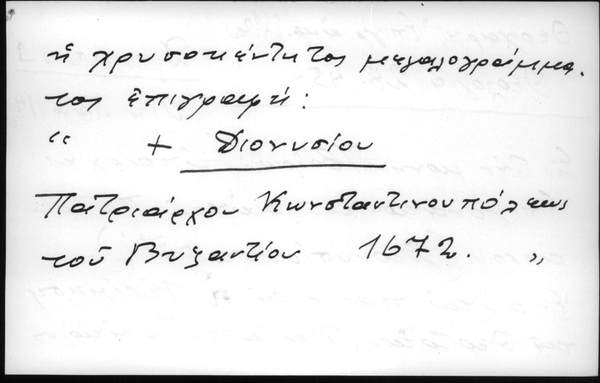 ἡ χρυσοκέντητος μεγαλογράμμα.
τος ἐπιγραφή:
“ + Διονυσίου
Πατριάρχου Κωνσταντινουπόλεως
τοῦ Βυζαντίου 1672. „